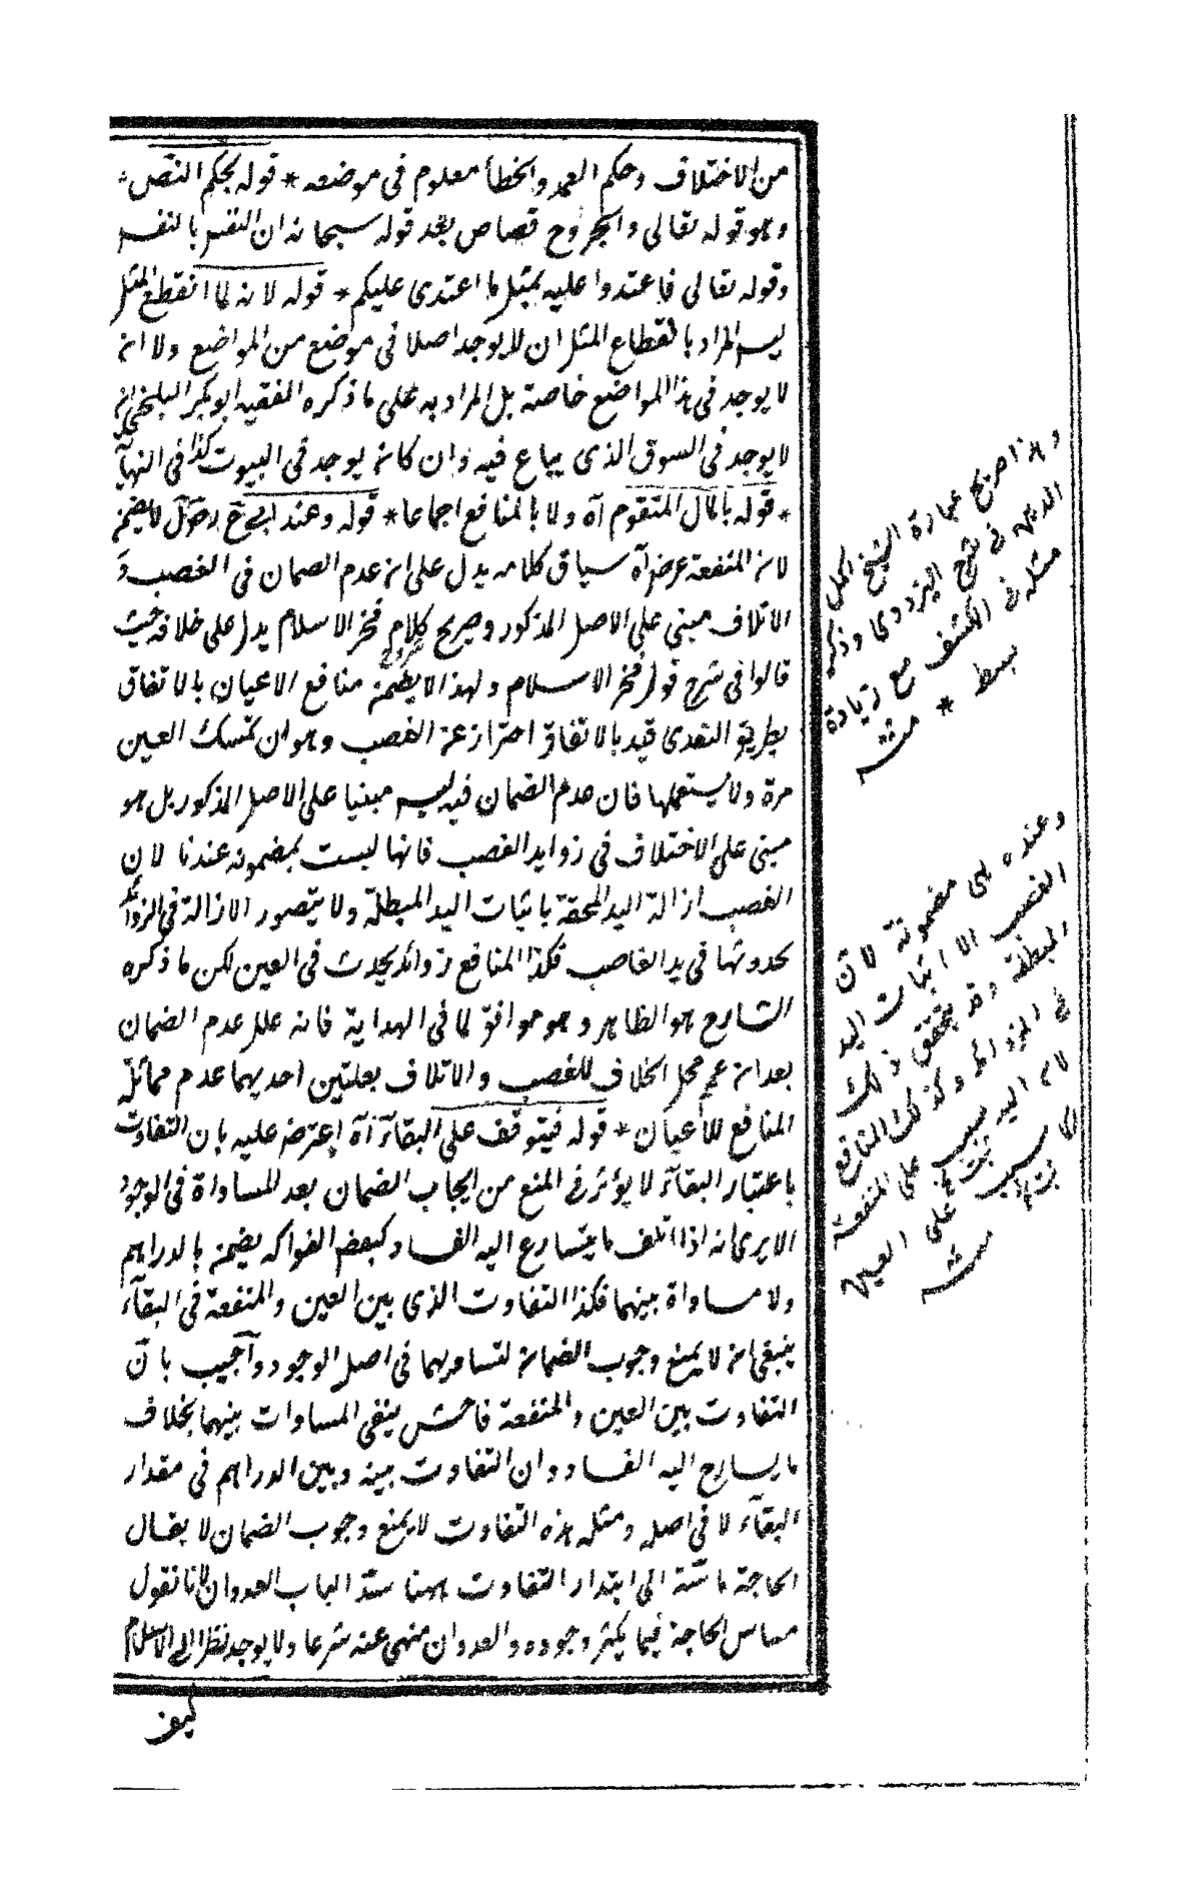 من الاختلاف وحكم العمد والخطأ معلوم فى موضعه * قوله بحكم النص
وهو قوله تعالى والجروح قصاص بعد قوله سبحانه ان النفس بالنفس
وقوله تعالى فاعتدوا عليه بمثل ما اعتدى عليكم * قوله لانه لما انقطع المثل
ليس المراد بانقطاع المثل ان لا يوجد اصلا فى موضع من المواضع ولا انه
لا يوجد فى هذا المواضع خاصة بل المراد به على ما ذكره الفقيه ابو بكر البلخى انه
لا يوجد فى السوق الذى يباع فيه وان كان يوجد فى البيوت كذا فى النهاية
* قوله بالمال المتقوم آه ولا بالمنافع اجماعا * قوله وعند ابى ح لا يضمن
لان المنفعة عرض آه سياق كلامه يدل على ان عدم الضمان فى الغصب و
الاتلاف مبنى على الاصل المذكور وصريح كلام فخر الاسلام يدل على خلافه حيث
قالوا فى شرح قول فخر الاسلام ولهذا لا يضمن منافع الاعيان بالاتفاق
بطريق التعدى قيد بالاتفاق احتراز عن الغصب وهو ان تمسك العين
مرة ولا يستعملها فان عدم الضمان فيه ليس مبنيا على الاصل المذكور بل هو
مبنى على الاختلاف فى زوايد الغصب فانها ليست بمضمونه عندنا لان
الغصب ازالة اليد المحقة باثبات اليد المبطلة ولا يتصور الازالة فى الزوائد
بحدوثها فى يد الغاصب فكذا المنافع زوائد يحدث فى العين لكن ما ذكره
الشارح هو الظاهر وهو موافق لما فى الهداية فانه علل عدم الضمان
بعد ان عمم محل الخلاف للغصب والاتلاف بعلتين احديهما عدم مماثلة
المنافع للأعيان * قوله فيتوقف على البقاء آه اعترض عليه بان التفاوت
باعتبار البقاء لا يؤثر فى المنع من ايجاب الضمان بعد المساواة فى الوجود
الا يرى انه اذا اتلف ما يتسارع اليه الفساد كبعض الفواكه يضمن بالدراهم
ولا مساواة بينهما فكذا التفاوت الذى بين العين والمنفعة فى البقاء
ينبغى ان لا يمنع وجوب الضمان لتساويهما فى اصل الوجود وأجيب بأن
التفاوت بين العين والمنفعة فاحش ينفى المساوات بينهما بخلاف
ما يسارع اليه الفساد وان التفاوت بينه وبين الدراهم فى مقدار
البقاء لا فى اصله ومثله هذه التفاوت لا يمنع وجوب الضمان لا يقال
الحاجة ماسة الى ابتدار التفاوت ههنا سدّا لباب العدوان لانا نقول
مساس الحاجة فيما يكثر وجوده والعدوان منهى عنه شرعا ولا يوجد نظرا الى الاسلام
كيف
وهذا صريح عبارة الشيخ اكمل
الدين فى شرح البزدوى وذكر
مثله فى الكشف مع زيادة
بسط * منه
وعنده هى مضمونة لأن
الغصب الاثبات اليد
المبطلة وقد يتحقق ذلك
فى الزوائد وكذلك المنافع
لان اليد على المنفعة
على العين
منه